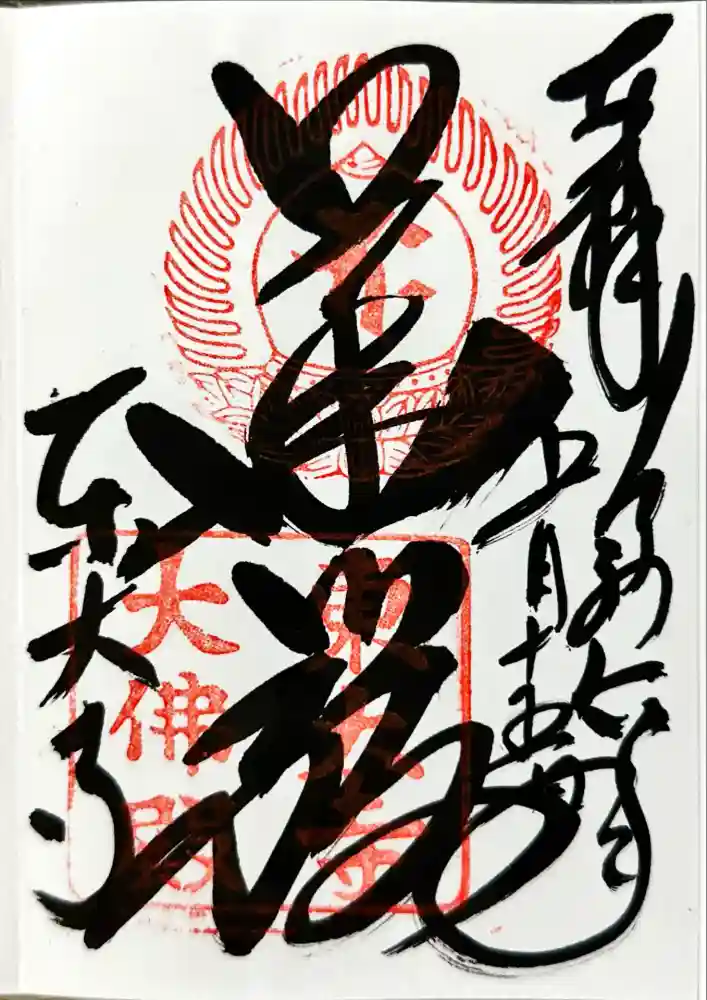 奉拝
令和七年
月十五日
華厳
東大寺
東大寺
大佛殿